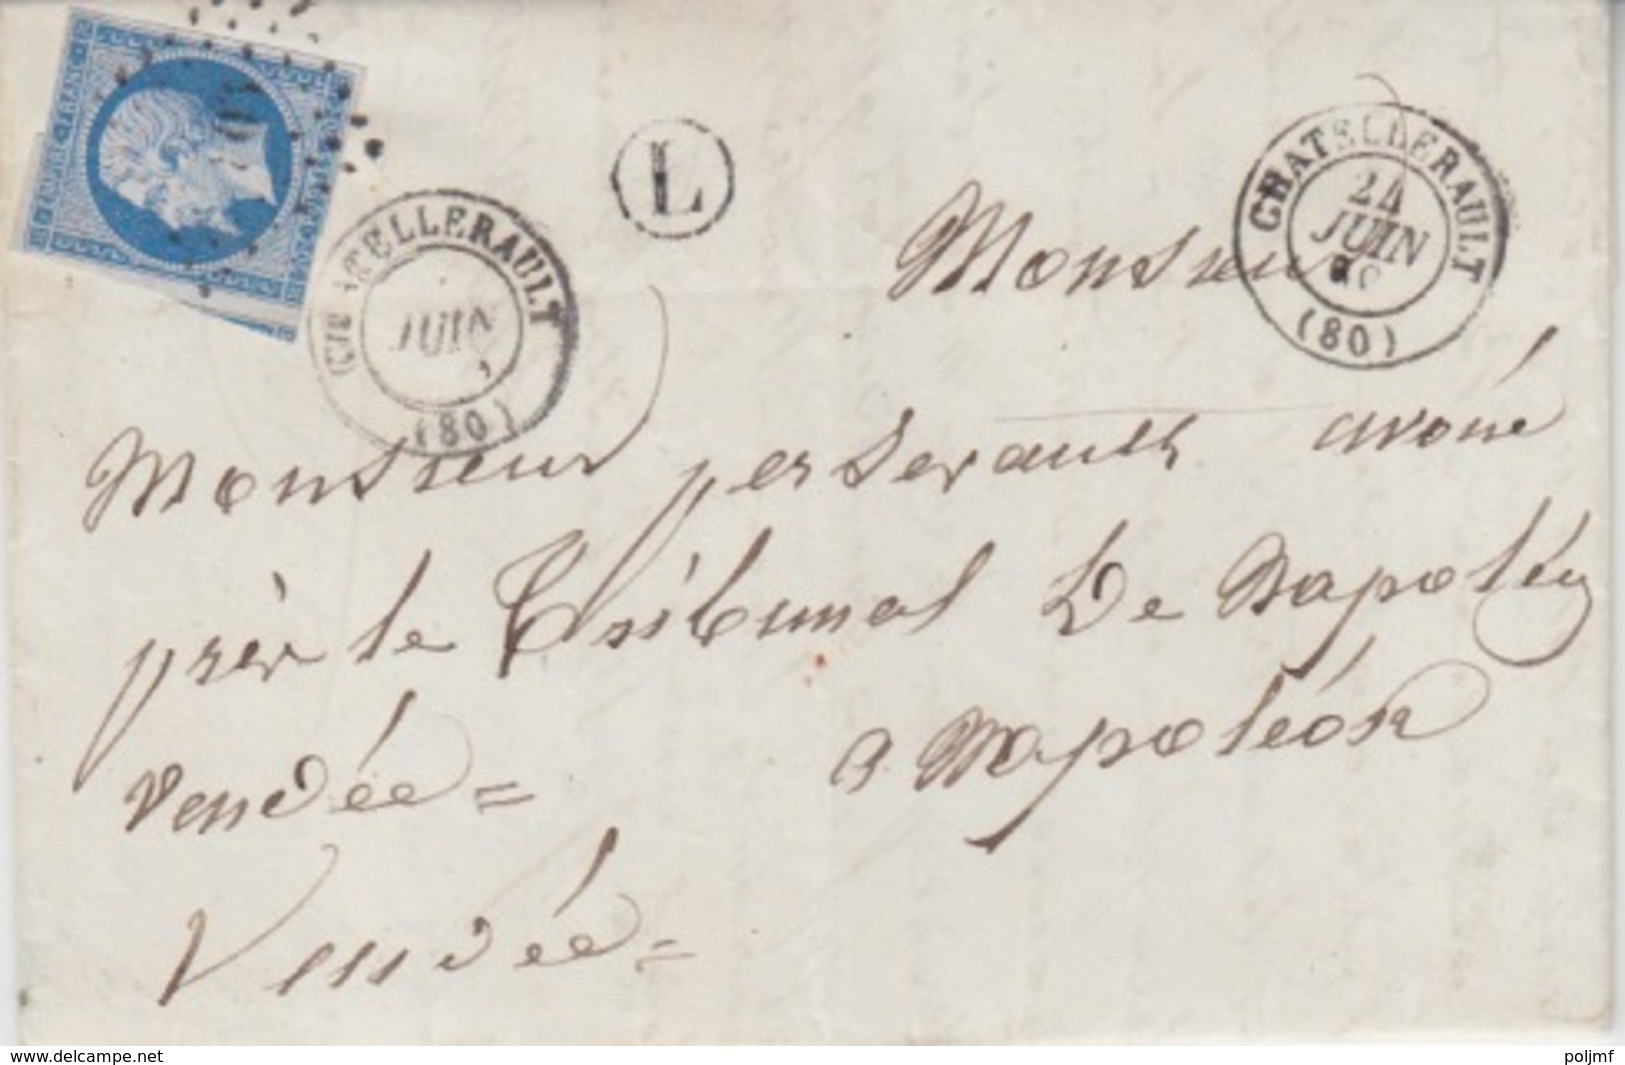 EMPIRE FRANC
L
CHATELLERAULT
24
JUIN
(80)
CH ATELLERAULT
JUIN
(80)
Monsieur
Monsieur perserault avoué
près le Tribunal De Napoléon
Vendée = a Napoléon
Vendée =
www.delcampe.net
poljmf